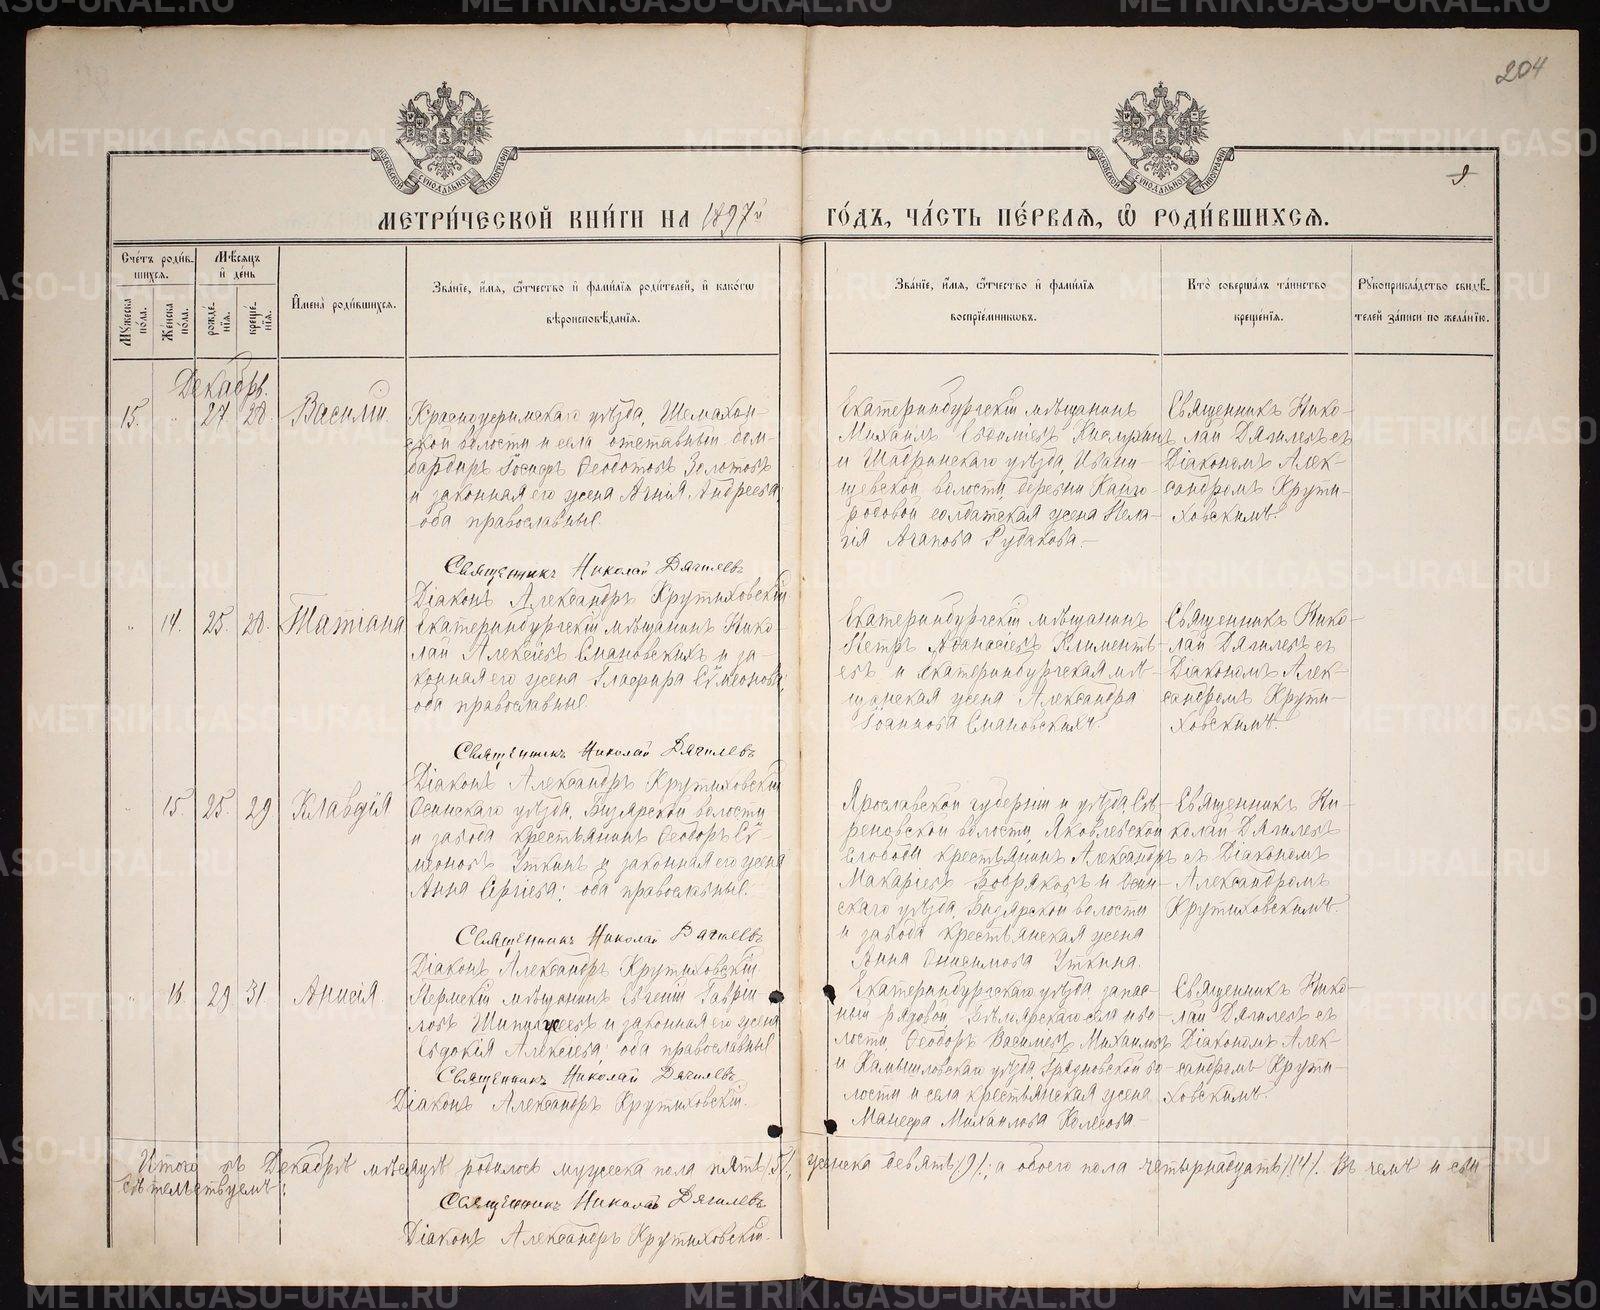 204
9.
МЕТРИ́ЧЕСКОЙ КНИ́ГИ НА 1897й ГО́ДЪ, ЧА́СТЬ ПЕ́РВАЯ, Ѡ҆ РОДИ́ВШИХСЯ.
Сче́тъ роди́вшихся.
Мꙋ́жеска по́ла.
Же́нска по́ла.
Мѣ́сяцъ и҆ де́нь
рожде́нїя.
креще́нїя.
И҆мена̀ роди́вшихся.
Зва́нїе, и҆́мя, ѻ҆́тчество и҆ фами́лїя роди́телей, и҆ како́гѡ
вѣроисповѣ́данїя.
Зва́нїе, и҆́мя, ѻ҆́тчество и҆ фами́лїя
воспрїе́мниковъ.
Кто̀ соверша́лъ та́инство
креще́нїя.
Рꙋкоприкла́дство свидѣ́-
телей за́писи по жела́нїю.
Декабрь.
15. " 27. 28. Василій.
Красноуфимскаго уѣзда, Шемахин-
ской волости и села отставный бом-
бардиръ Іосифъ Ѳеодотовъ Золотовъ
и законная его жена Агнія Андреева;
оба православные.
Священникъ Николай Дягилевъ
Діаконъ Александръ Крутиховскій
Екатеринбургскій мѣщанинъ
Михаилъ Евѳиміевъ
и Шадринскаго уѣзда, Ивани-
щевской волости, деревни
солдатская жена Пела-
гія Агапова Рубакова.—
Священникъ Нико-
лай Дягилевъ съ
Діакономъ Алек-
сандромъ Крути-
ховскимъ.
" 14. 25. 28. Татіана
Екатеринбургскій мѣщанинъ Нико-
лай Алексіевъ Смановскихъ и за-
конная его жена Глафира Сѵмеонова;
оба православные.
Священникъ Николай Дягилевъ
Діаконъ Александръ Крутиховскій
Екатеринбургскій мѣщанинъ
Петръ Аѳанасіевъ Климентъ-
евъ и екатеринбургская мѣ-
щанская жена Александра
Іоаннова Смановскихъ.
Священникъ Нико-
лай Дягилевъ съ
Діакономъ Алек-
сандромъ Крути-
ховскимъ.
" 15. 25. 29 Клавдія
Осинскаго уѣзда, Бизярской волости
и завода крестьянинъ Ѳеодоръ Сѵ-
меоновъ Уткинъ и законная его жена
Анна Сергіева; оба православные.
Священникъ Николай Дягилевъ
Діаконъ Александръ Крутиховскій.
Ярославской губерніи и уѣзда, Сѣ-
реновской волости, Яковлевской
слободы крестьянинъ Александръ
Макаріевъ Бобряковъ и Осин-
скаго уѣзда, Бизярской волости
и завода крестьянская жена
Анна Онисимова Уткина.
Священникъ Ни-
колай Дягилевъ
съ Діакономъ
Александромъ
Крутиховскимъ.
" 16 29 31 Анисія.
Пермскій мѣщанинъ Евгеній Гаврі-
ловъ и законная его жена
Евдокія Алексіева; оба православные
Священникъ Николай Дягилевъ
Діаконъ Александръ Крутиховскій.
Екатеринбургскаго уѣзда запас-
ный рядовой села и во-
лости, Ѳеодоръ Василіевъ Михаилевъ
и Камышловскаго уѣзда, Грязновской во-
лости и села крестьянская жена
Манефа Михаилова Колесова—
Священникъ Нико-
лай Дягилевъ съ
Діакономъ Алек-
сандромъ Крути-
ховскимъ.
Итого въ Декабрѣ мѣсяцѣ родилось мужеска пола пять /5/, женска девять /9/; а обоего пола четырнадцать /14/. Въ чемъ и сви-
дѣтельствуемъ:
Священникъ Николай Дягилевъ
Діаконъ Александръ Крутиховскій.